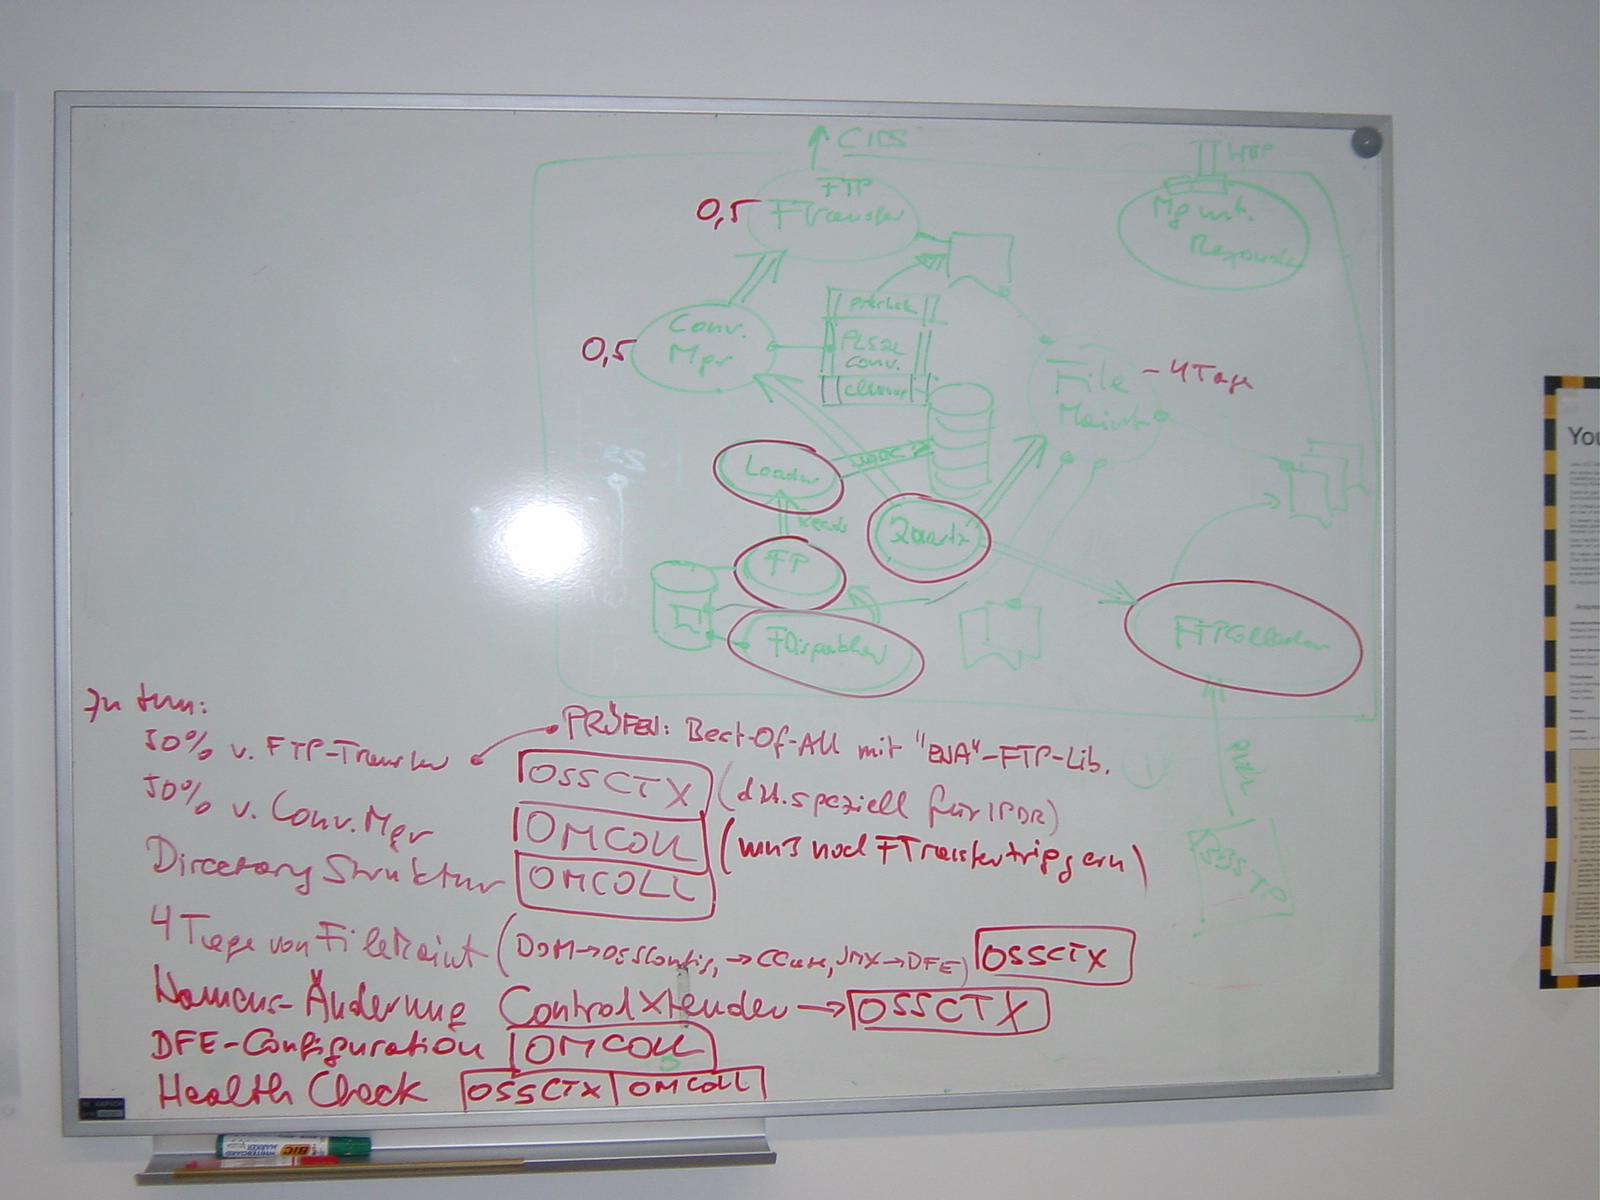 CIDS
HTTP
FTP
FTransfer
0,5
Mgmt.
Responder
Conv.
Mgr
0,5
prehook
PLSQL
conv.
cleanup
File
Maint
- 4 Tage
Loader
JDBC
reads
Quartz
FP
FDispatcher
FTPCollector
You
Zu tun:
50% v. FTP-Transfer
PRÜFEN: Best-Of-All mit "ENA"-FTP-Lib.
OSSCTX (dzt. speziell für IPDR)
50% v. Conv.Mgr OMCOLL (muß noch FTransfer triggern)
Directory Struktur OMCOLL
4 Tage von FileMaint (DOM→OSSConfig, →CCure, JMX→DFE) OSSCTX
Namens-Änderung ControlXtender → OSSCTX
DFE-Configuration OMCOLL
Health Check OSSCTX OMCOLL
BIC